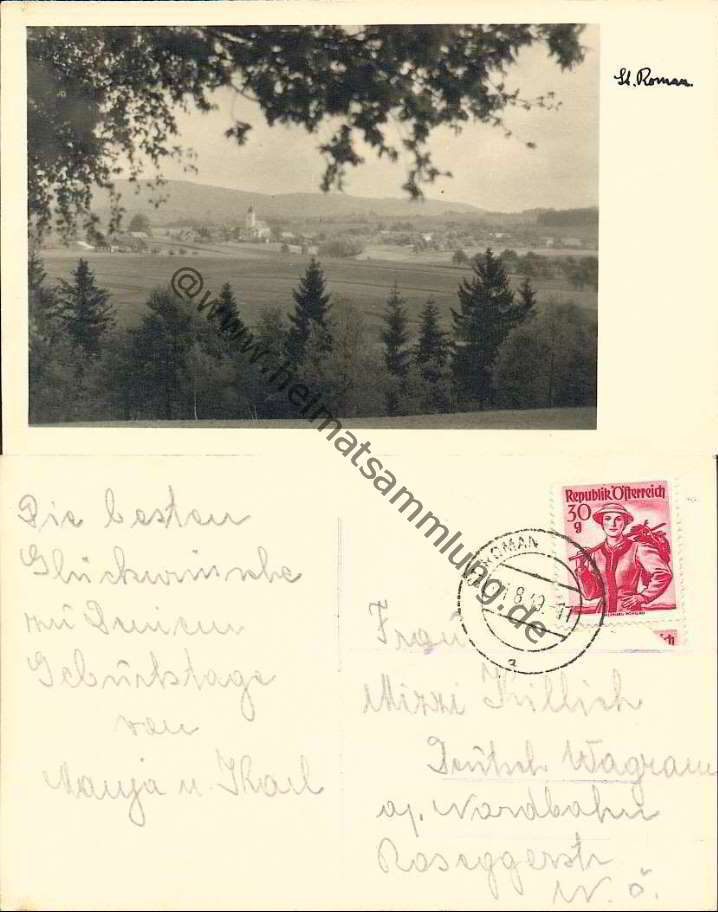 St. Roman.
@www.heimatsammlung.de
Die besten
Glückwünsche
zu Deinem
Geburtstage
von
u. Karl
Republik Österreich
30
g
ROMAN
Frau
Mizzi
Deutsch Wagram
a/ Nordbahn
Roseggerstr
N. Ö.